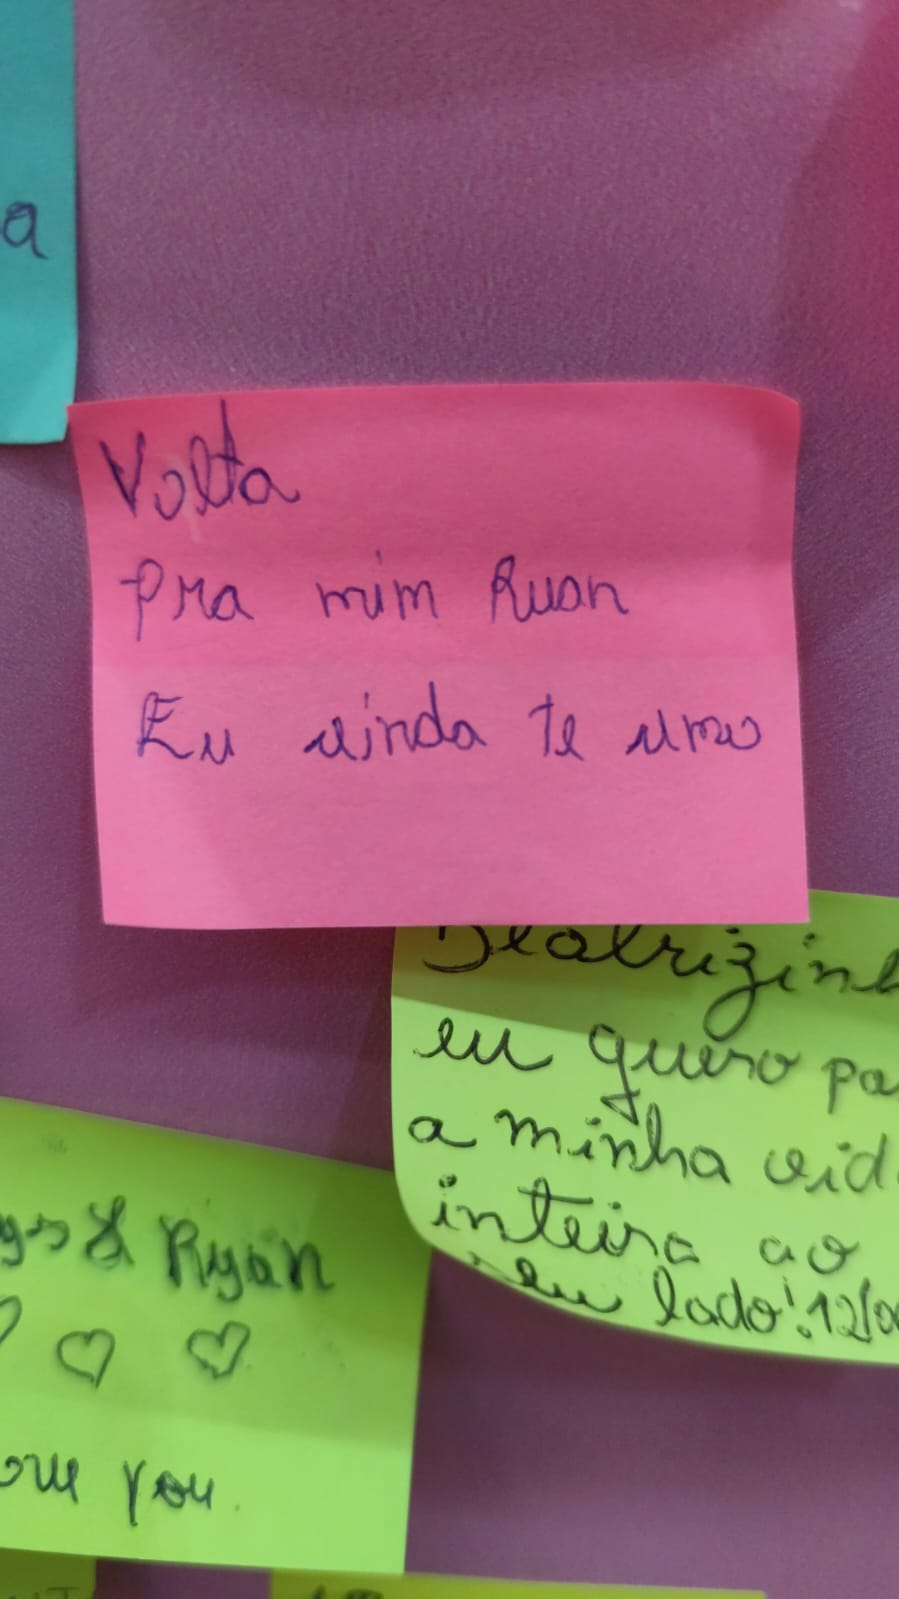 a
Volta
Pra mim Ruan
Eu ainda te amo
Beatrizinh
eu quero pa
a minha vid
inteira ao
seu lado! 12/0
& Ryan
ove you.